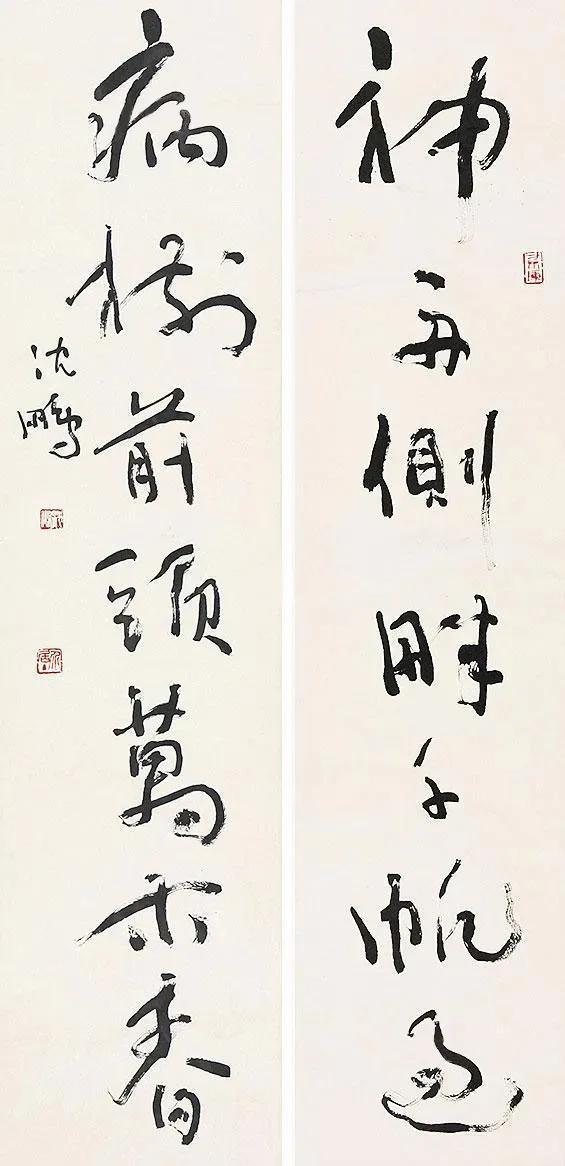 神舟側畔千帆過
病樹前頭萬木春
沈鵬